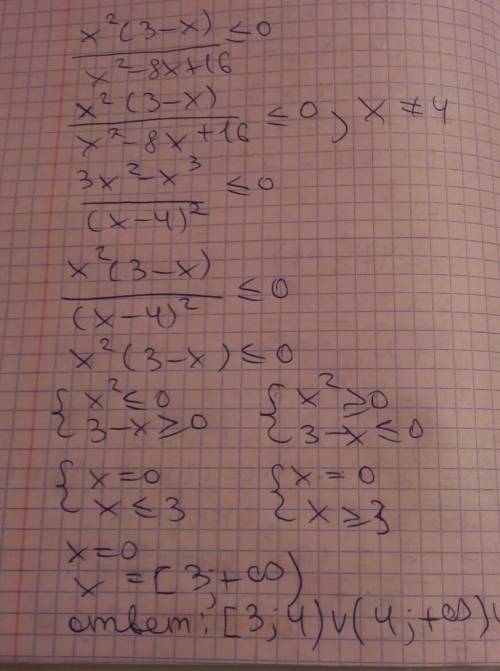 x²(3-x) / x²-8x+16 ≤ 0
x²(3-x) / x²-8x+16 ≤ 0, x ≠ 4
3x²-x³ / (x-4)² ≤ 0
x²(3-x) / (x-4)² ≤ 0
x²(3-x) ≤ 0
{ x² ≤ 0 { x² ≥ 0
3-x ≥ 0 3-x ≤ 0
{ x = 0 { x = 0
x ≤ 3 x ≥ 3
x = 0
x = [3; +∞)
ответ: [3; 4) ∪ (4; +∞) ∪